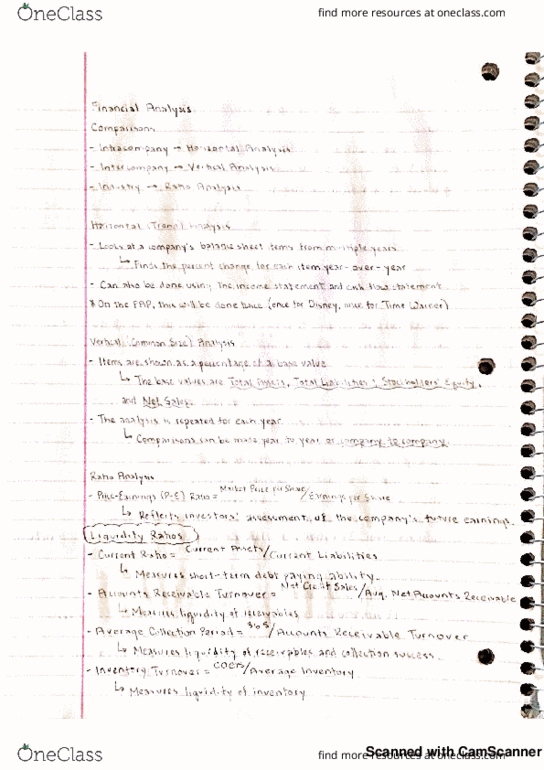 OneClass
find more resources at oneclass.com
Financial Analysis
Comparisons
- Intracompany → Horizontal Analysis
- Intercompany → Vertical Analysis
- Industry → Ratio Analysis
Horizontal (Trend) Analysis
- Looks at a company's balance sheet items from multiple years
↳ Finds the percent change for each item year-over-year
- Can also be done using the income statement and cash flow statement
* On the FAP, this will be done twice (once for Disney, once for Time Warner)
Vertical (Common Size) Analysis
- Items are shown as a percentage of a base value
↳ The base values are Total Assets, Total Liabilities + Stockholders' Equity,
and Net Sales
- The analysis is repeated for each year
↳ Comparisons can be made year to year or company to company.
Ratio Analysis
- Price-Earnings (P-E) Ratio = Market Price per Share/Earnings per Share
↳ Reflects investors' assessment of the company's future earnings.
Liquidity Ratios
- Current Ratio = Current Assets/Current Liabilities
↳ Measures short-term debt paying ability.
- Accounts Receivable Turnover = Net Credit Sales/Avg. Net Accounts Receivable
↳ Measures liquidity of receivables
- Average Collection Period = 365/Accounts Receivable Turnover
↳ Measures liquidity of receivables and collection success.
- Inventory Turnover = COGS/Average Inventory
↳ Measures liquidity of inventory
OneClass
find more resources at oneclass.com
Scanned with CamScanner